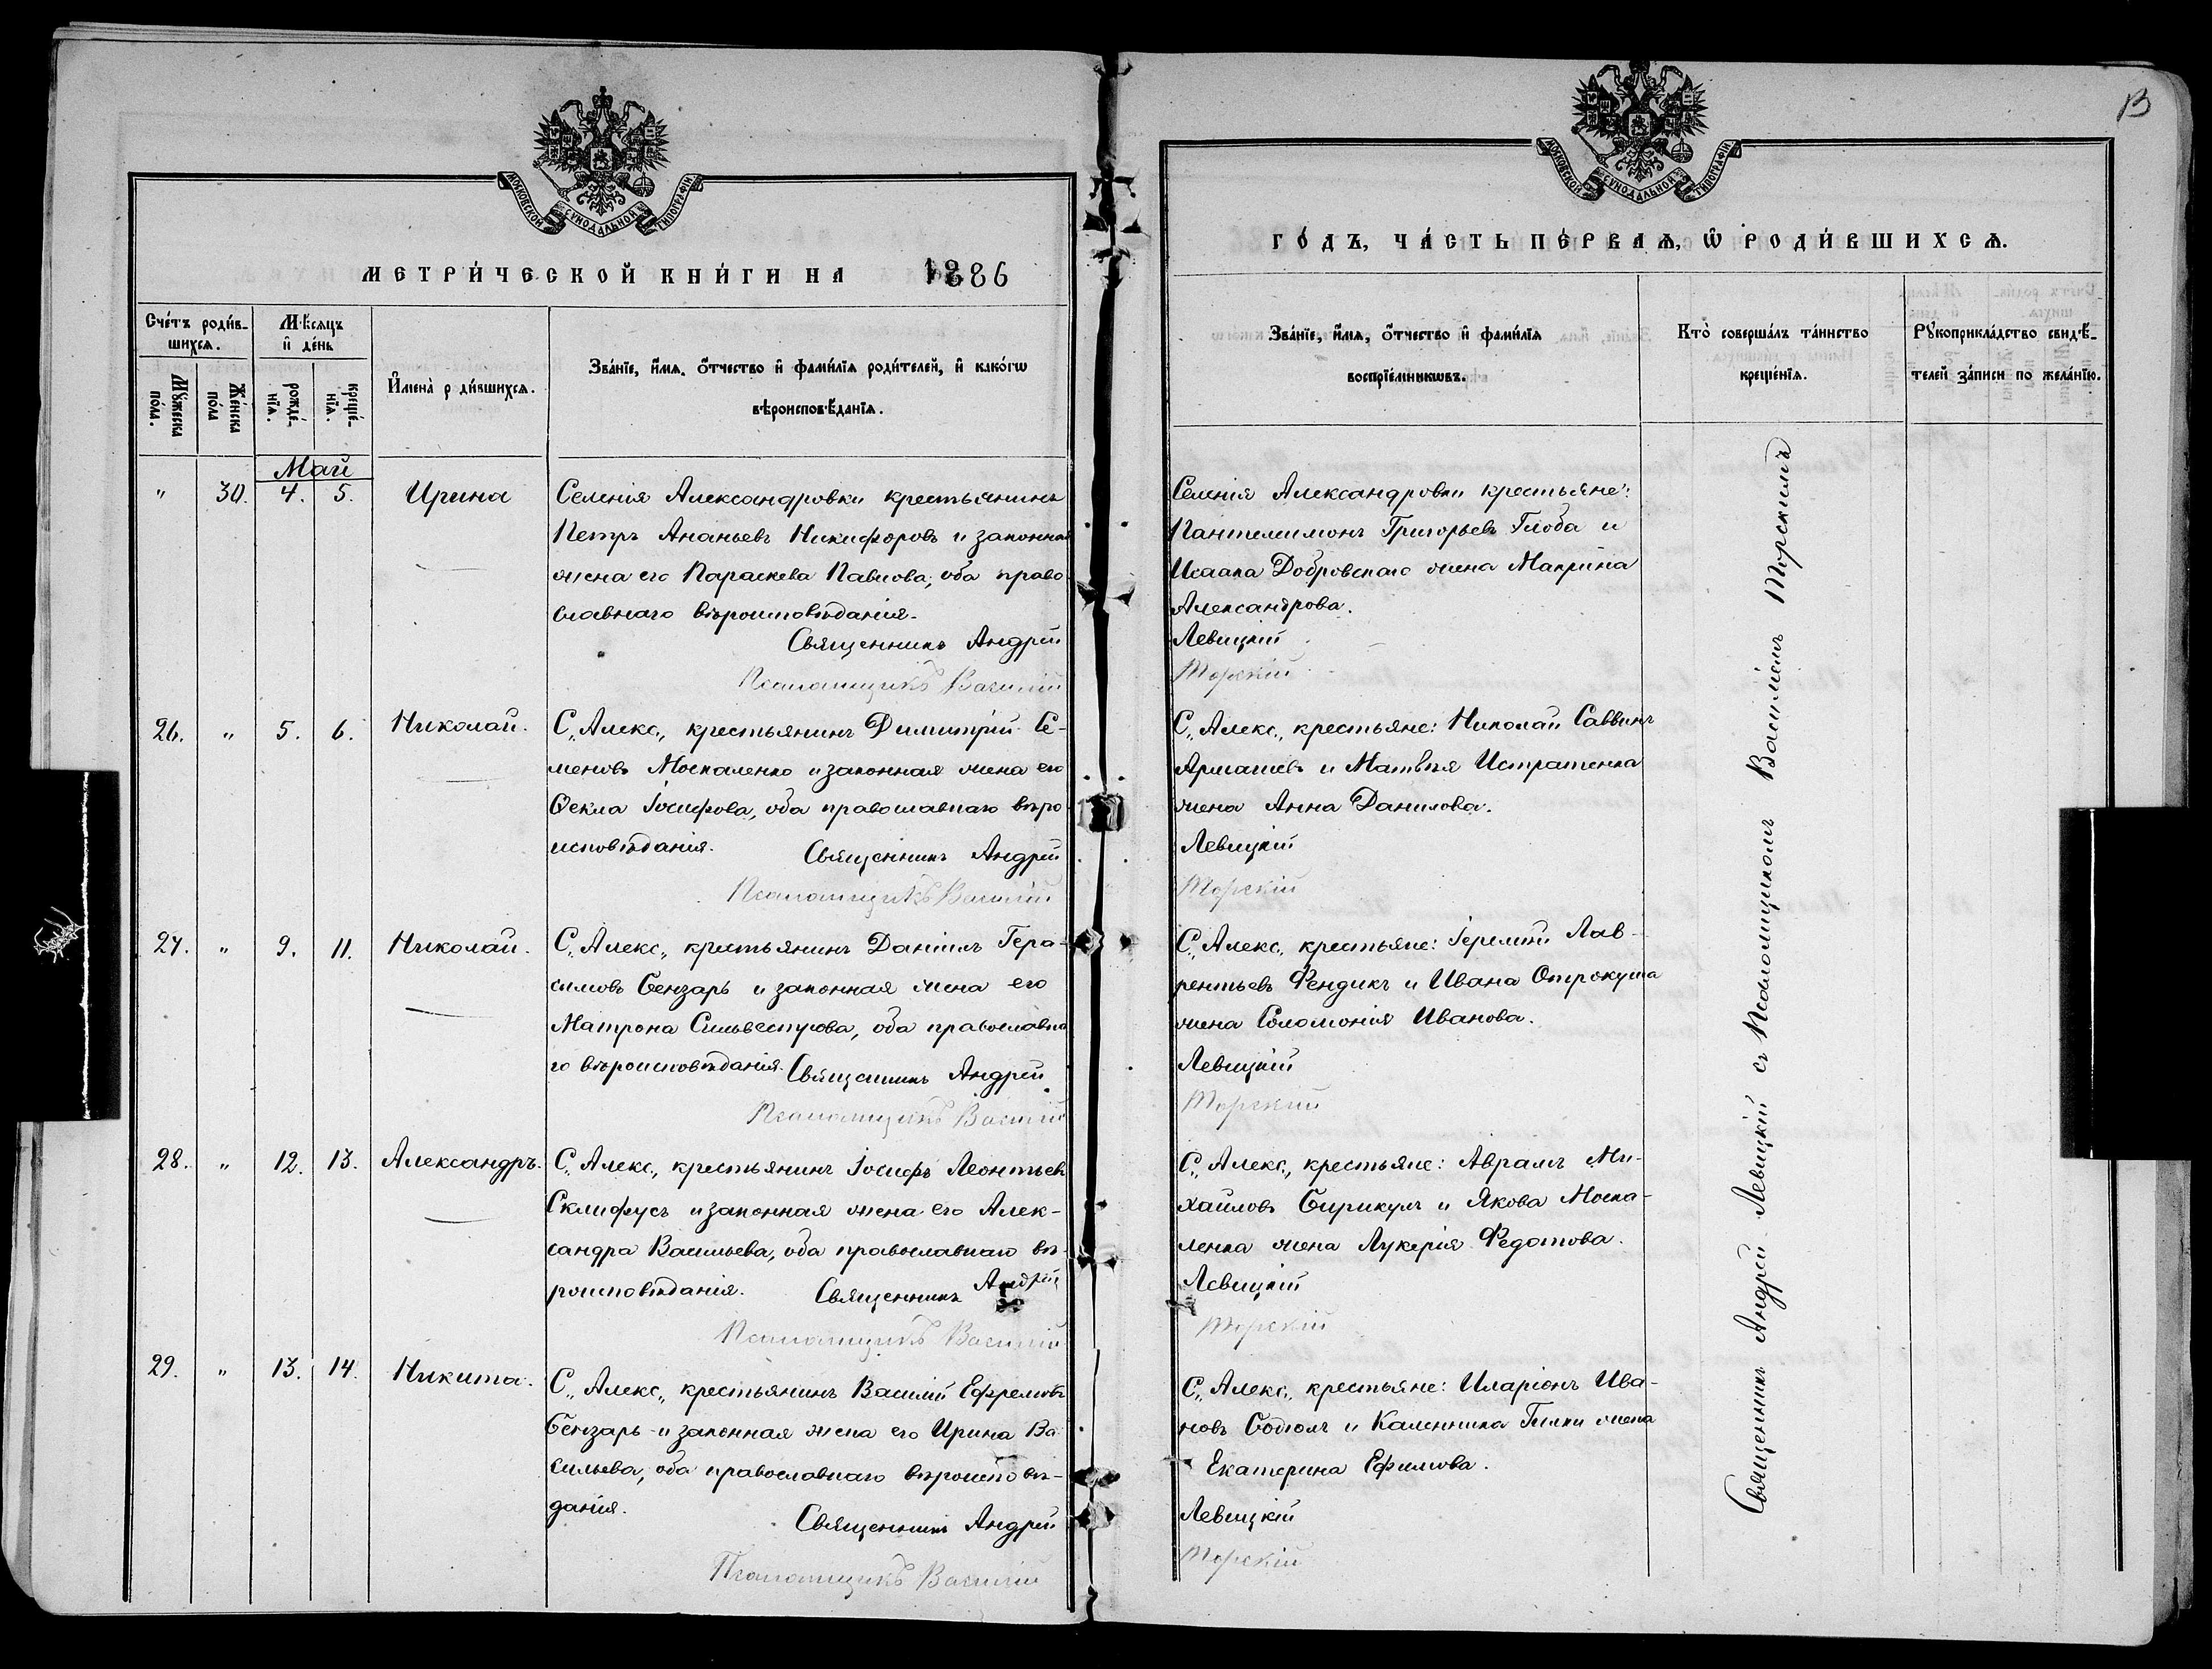 МОСКОВСКОЙ СѴНОДАЛЬНОЙ ТИПОГРАФІИ
МЕТРИ́ЧЕСКОЙ КНИ́ГИ НА 1886
Сче́тъ роди́в-
шихся.
Мꙋжеска по́ла.
Же́нска по́ла
Мѣ́сяцъ
и҆ де́нь
рожде́-
нїѧ.
креще́-
нїѧ.
И҆мена̀ р ди́вшихсѧ.
Зва́нїе, и҆́мѧ, ѻ҆́тчество и҆ фами́лїѧ роди́телей, и҆ како́гѡ
вѣроисповѣ́данїѧ.
Май
" 30. 4. 5. Ирина
Селенія Александровки крестьянинъ
Петръ Ананьевъ Никифоровъ и законная
жена его Параскева Павлова, оба право
славнаго вѣроисповѣданія.
Священникъ Андрей
Псаломщикъ Василій
26. " 5. 6. Николай.
С. Алекс., крестьянинъ Димитрій Се-
меновъ Москаленко и законная жена его
Ѳекла Іосифова, оба православнаго вѣро
исповѣданія.
Священникъ Андрей
Псаломщикъ Василій
27. " 9. 11. Николай.
С. Алекс., крестьянинъ Даніилъ Гера-
симовъ Бензарь и законная жена его
Матрона Сильвестрова, оба православна
го вѣроисповѣданія. Священникъ Андрей
Псаломщикъ Василій
28. " 12. 13. Александръ.
С. Алекс., крестьянинъ Іосифъ Леонтьевъ
Склифусъ и законная жена его Алек-
сандра Васильева, оба православнаго вѣ-
роисповѣданія. Священникъ Андрей
Псаломщикъ Василій
29. " 13. 14. Никита.
С. Алекс., крестьянинъ Василій Ефремовъ
Бензарь и законная жена его Ирина Ва
сильева, оба православнаго вѣроисповѣ-
данія.
Священникъ Андрей
Псаломщикъ Василій
13
МОСКОВСКОЙ СѴНОДАЛЬНОЙ ТИПОГРАФІИ
ГО́ДЪ, ЧА́СТЬ ПЕ́РВАѦ, Ѡ҆ РОДИ́ВШИХСѦ.
Зва́нїе, и҆́мѧ, ѻ҆́тчество и҆ фами́лїѧ
воспрїе́мникѡвъ.
Кто̀ соверша́лъ та́инство
креще́нїѧ.
Рꙋкоприкла́дство свидѣ́-
телей за́писи по жела́нїю.
Селенія Александровки крестьяне:
Пантелимонъ Григорьевъ Глоба и
Исаака Добровскаго жена Макрина
Александрова.
Левицкій
Морскій
С. Алекс., крестьяне: Николай Саввинъ
и Матвѣя Истратенка
жена Анна Данилова.
Левицкій
Морскій
С. Алекс., крестьяне: Іеремій Лав-
рентьевъ Фендикъ и Ивана Отрокуша
жена Соломонія Иванова.
Левицкій
Морскій
С. Алекс., крестьяне: Аврамъ Ми-
хайловъ Бирикулъ и Якова Моска-
ленка жена Лукерія Федотова.
Левицкій
Морскій
С. Алекс., крестьяне: Иларіонъ Ива-
новъ и Каленника жена
Екатерина Ефимова.
Левицкій
Морскій
Священникъ Андрей Левицкій съ Псаломщикомъ Василіемъ Морскимъ